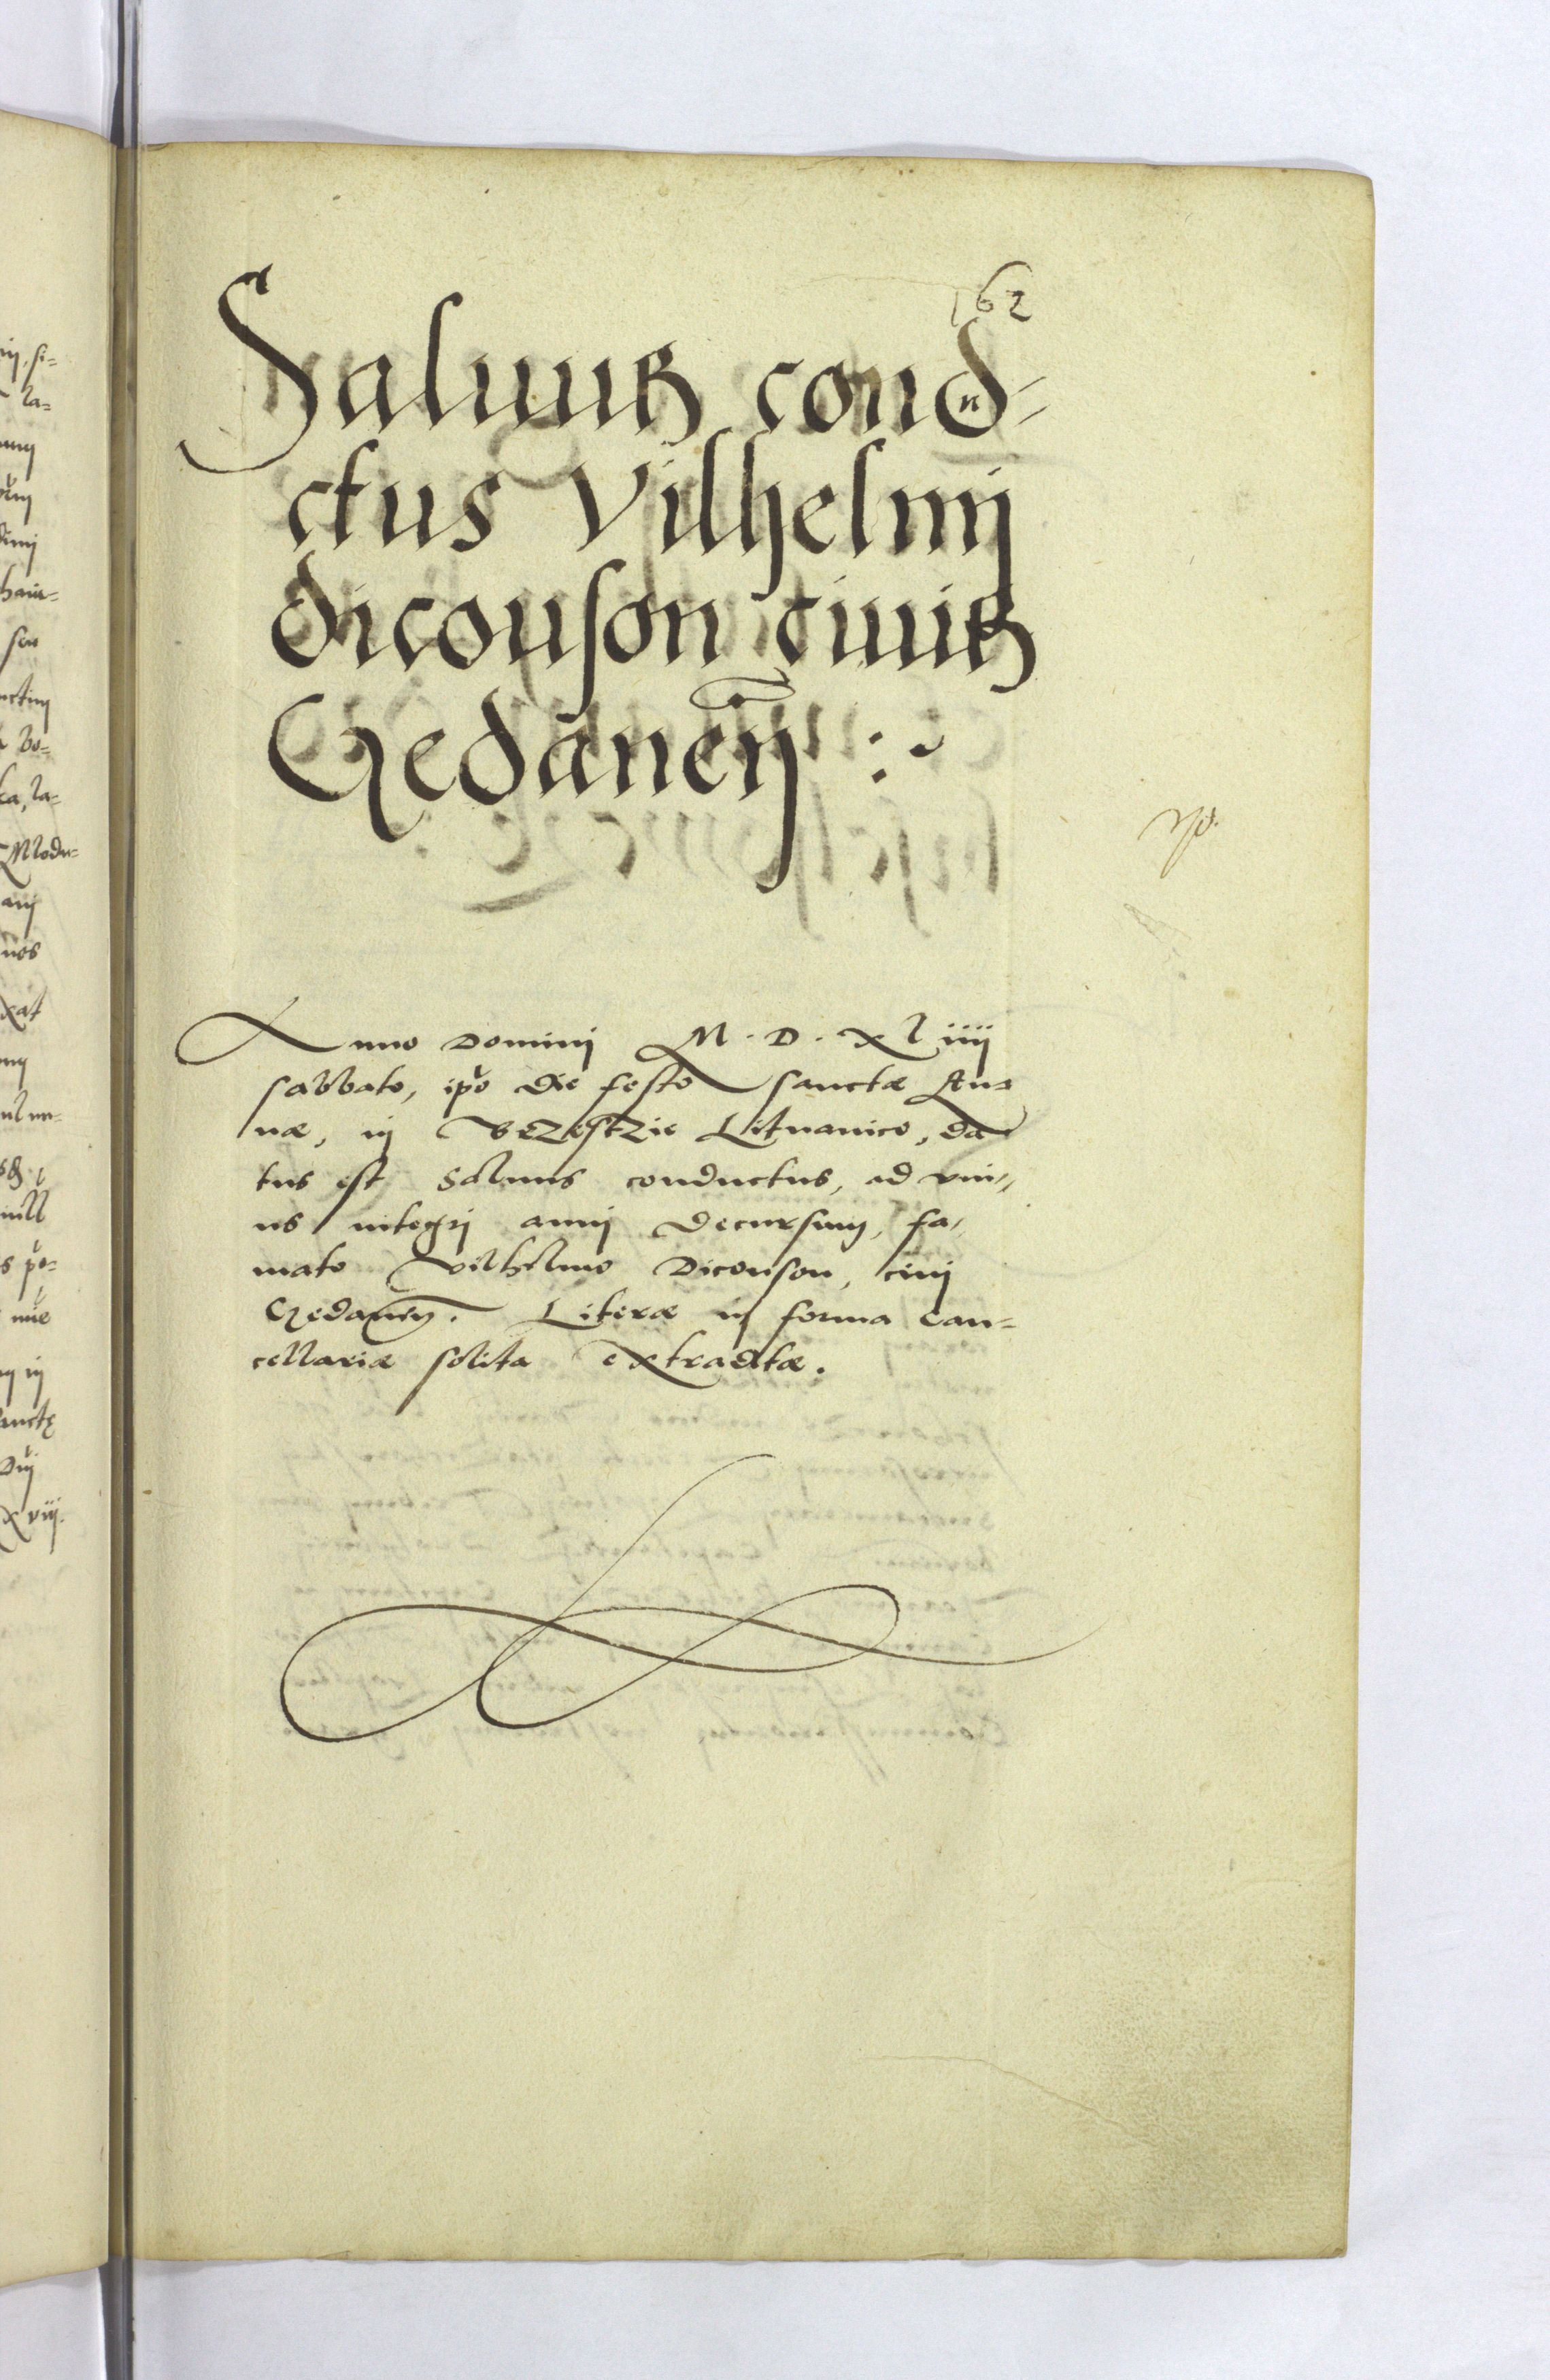 162
Saluus condu-
ctus Vilhelmi
dicouson ciuis
Gedanen :~
Anno Domini M.D.XLiiii
sabbato, ipo die festo sanctæ An-
næ, in Brzestzie Lituanico, da
tus est Saluus conductus, ad vni-
us integri anni decursum, fa-
mato Vilhelmo Diconson, ciui
Gedanen. Literæ in forma Can-
cellariæ solita extraditæ.